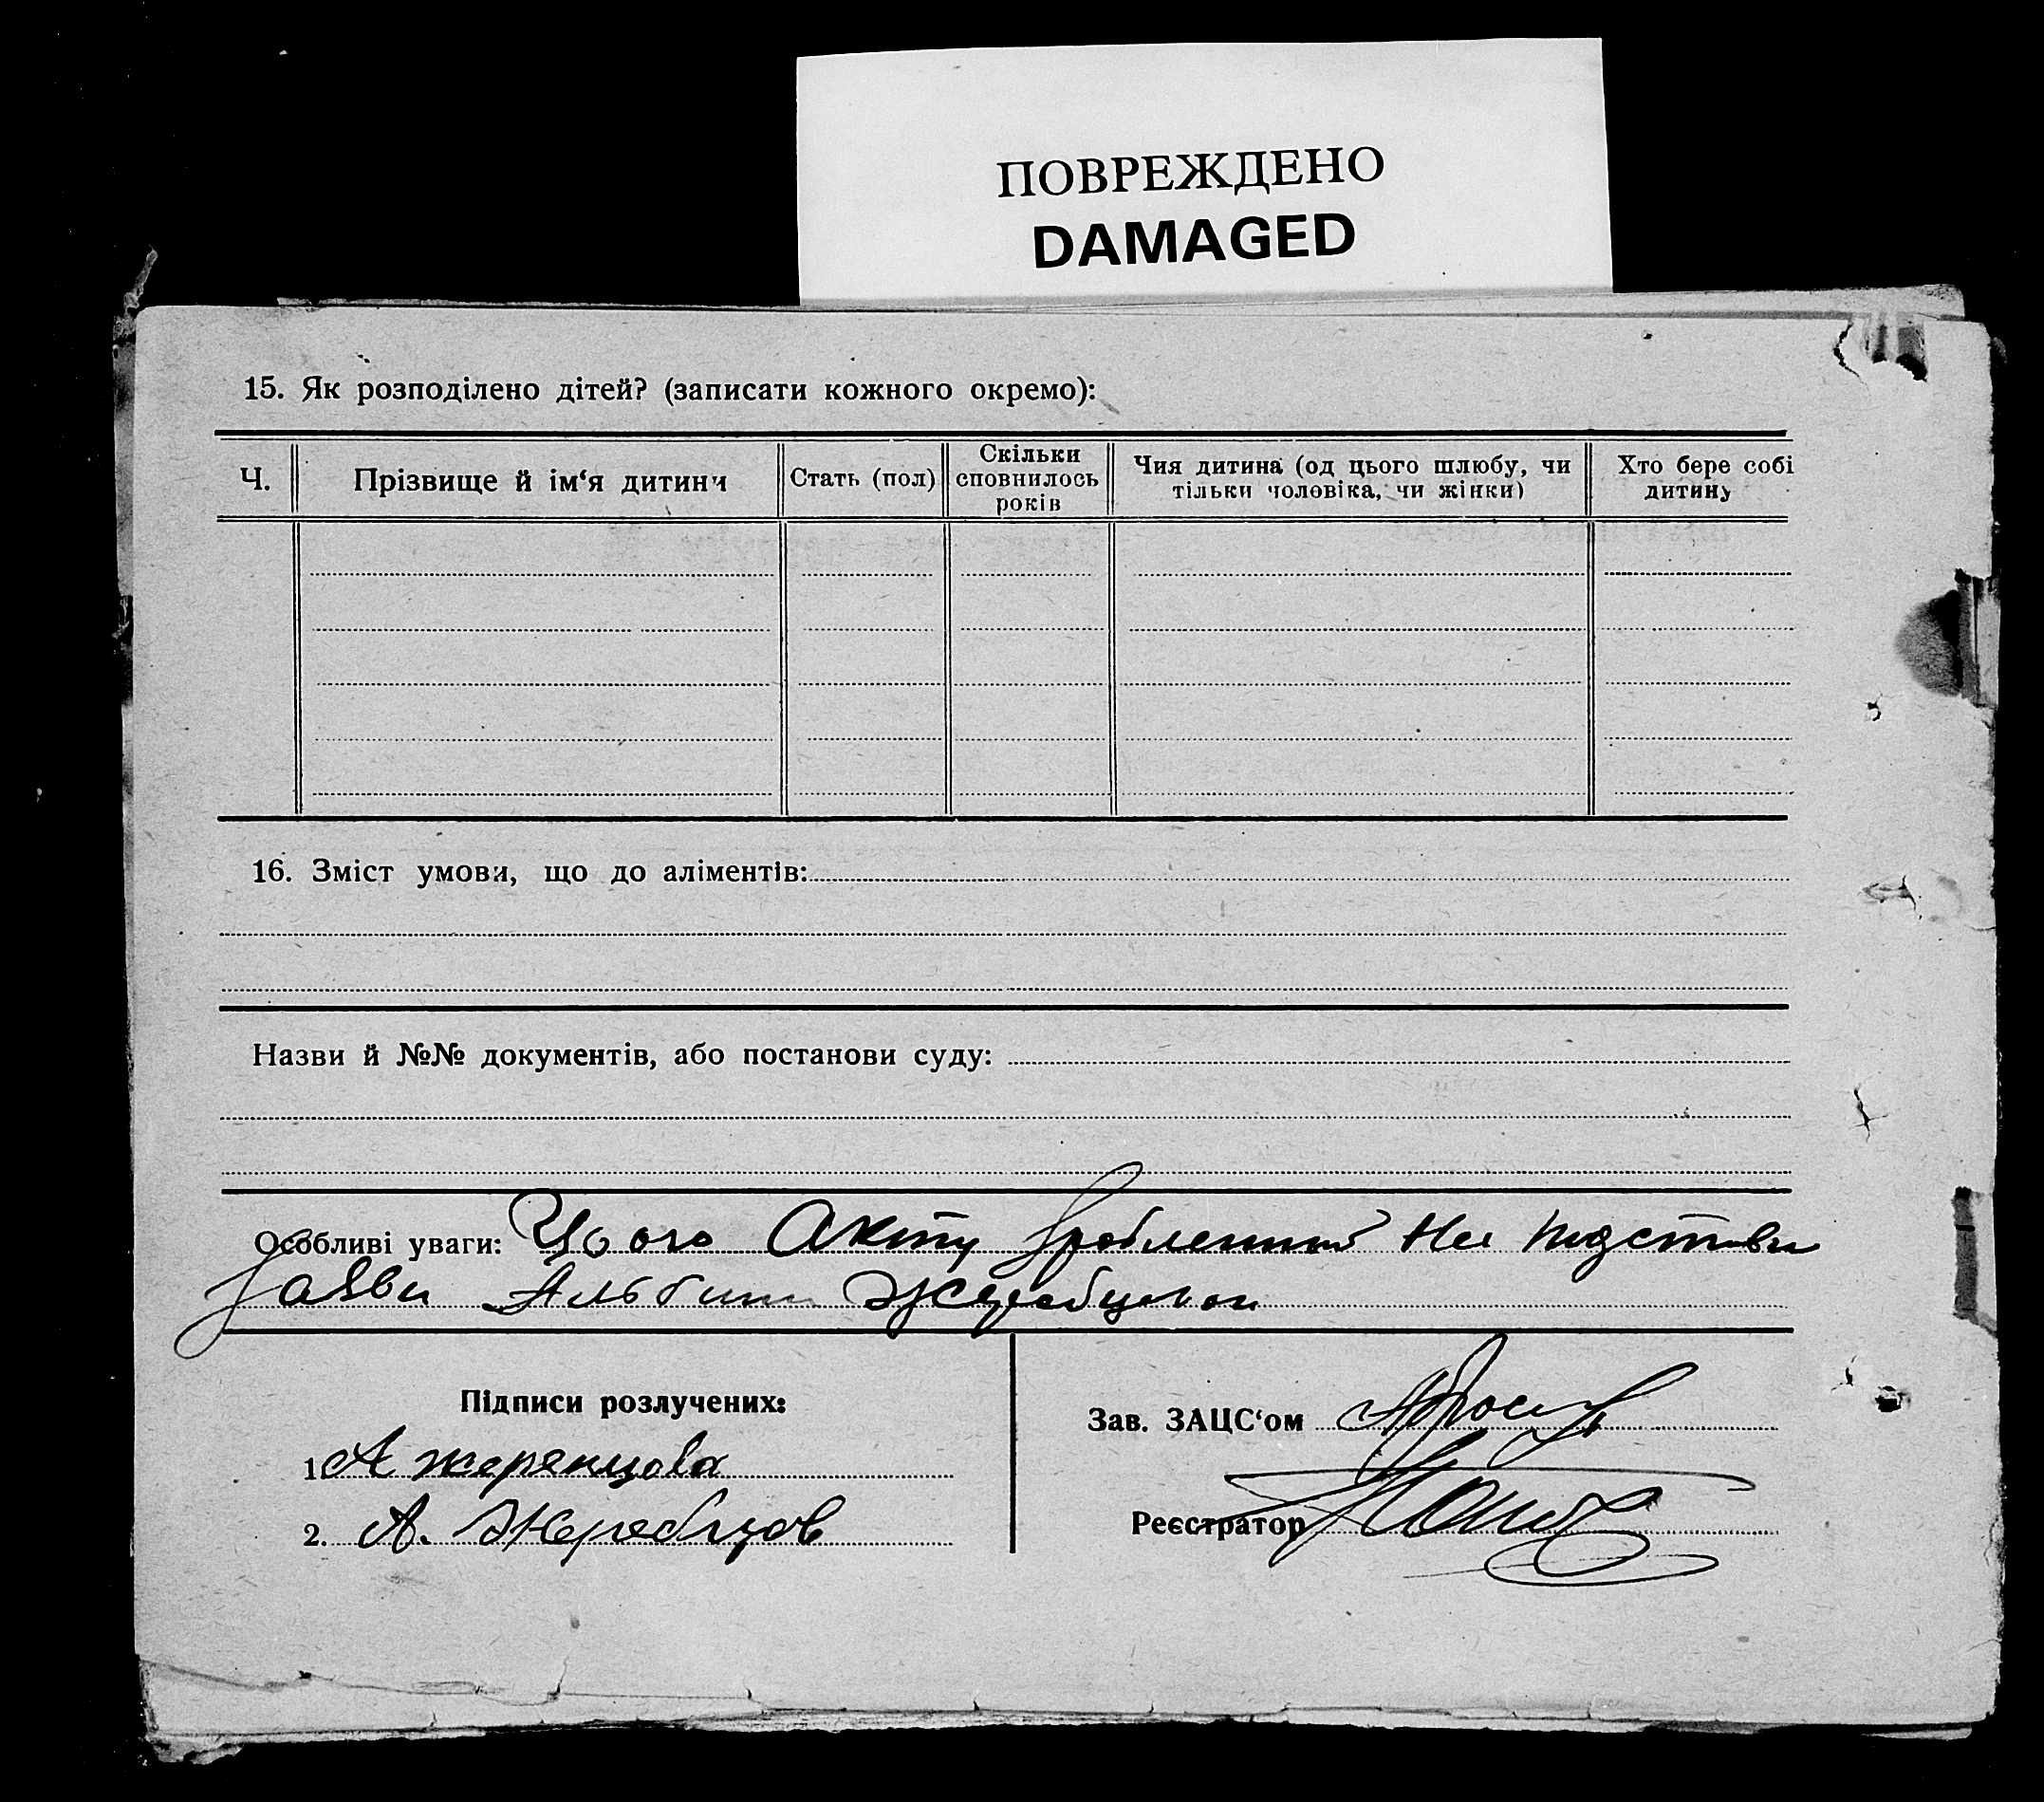 ПОВРЕЖДЕНО
DAMAGED
15. Як розподілено дітей? (записати кожного окремо):
Ч.
Прізвище й ім‘я дитини
Стать (пол)
Скільки
сповнилось
років
Чия дитина (од цього шлюбу, чи
тільки чоловіка, чи жінки)
Хто бере собі
дитину
16. Зміст умови, що до аліментів:
Назви й №№ документів, або постанови суду:
Особливі уваги: Цього Акту зроблений на підстави
заяви Альбини Жеребцовои
Підписи розлучених:
1 А жеребцова
2. А. Жеребцов
Зав. ЗАЦС‘ом
Реєстратор